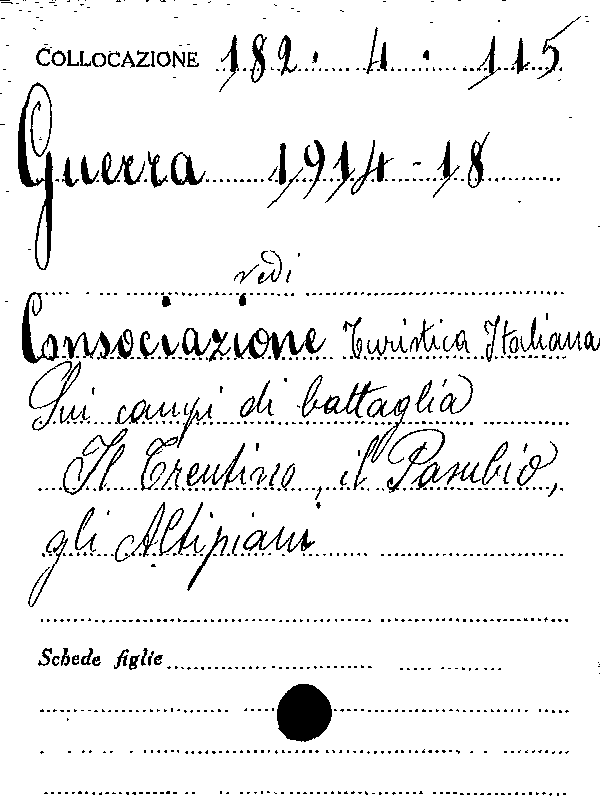 COLLOCAZIONE 182. 4. 115
Guerra 1914-18
vedi
Consociazione Turistica Italiana
Sui campi di battaglia
Il Trentino, il Pasubio,
gli Altipiani
Schede figlie